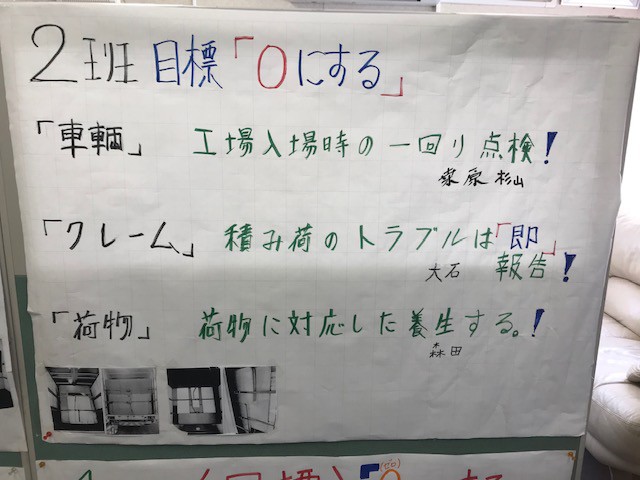 2班 目標「0にする」
「車輌」 工場入場時の一回り点検!
家原 杉山
「クレーム」 積み荷のトラブルは「即」
大石 報告!
「荷物」 荷物に対応した養生する。!
森田